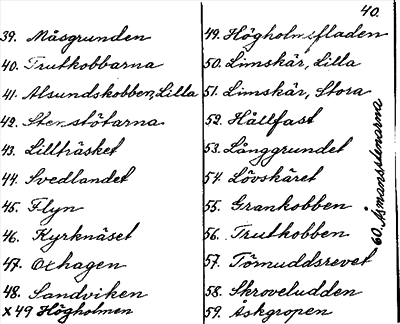 40.
39. Måsgrunden
40. Trutkobbarna
41. Alsundskobben, Lilla
42. Stenstötarna
43. Lillträsket
44. Svedlandet
45. Flyn
46. Kyrknäset
47. Oxhagen
48. Sandviken
x 49 Högholmen
49. Högholmsfladen
50. Limskär, Lilla
51. Limskär, Stora
52. Hållfast
53. Långgrundet
54. Lövskäret
55. Grankobben
56. Trutkobben
57. Törnuddsrevet
58. Skroveludden
59. Askgropen
60. Åsmansstenarna